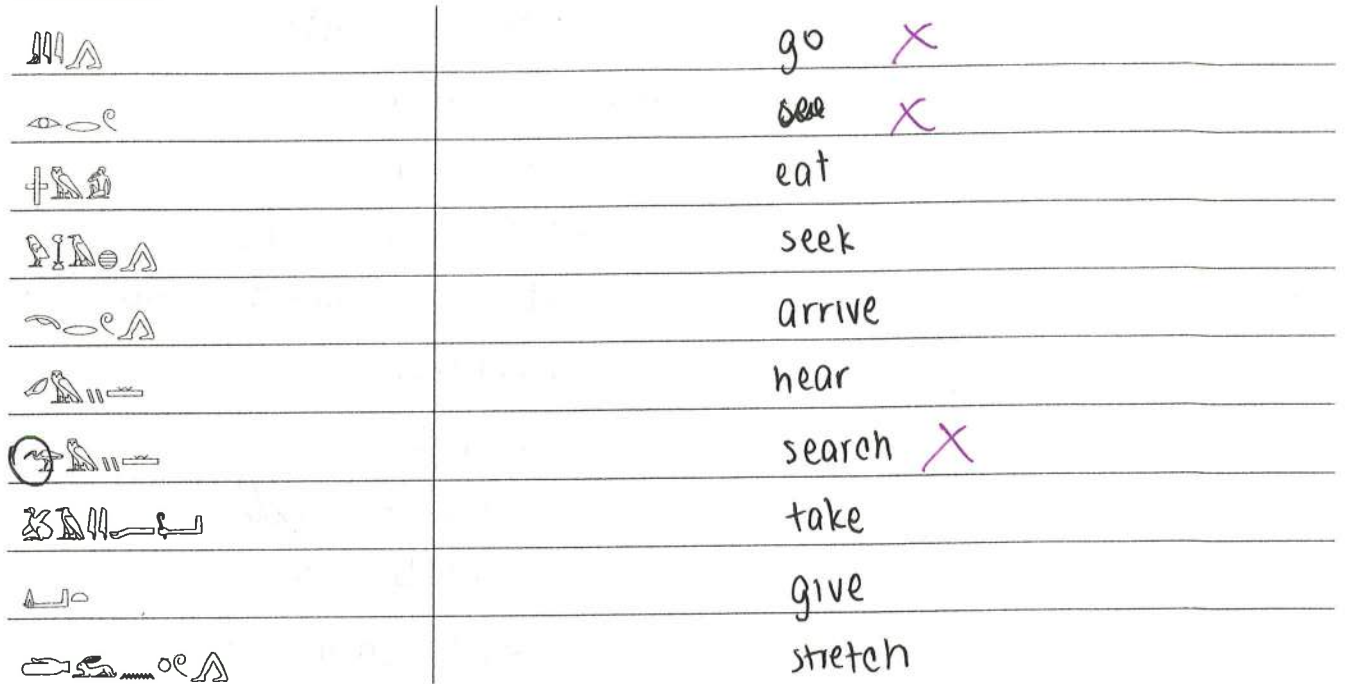 𓇍𓇋𓇋𓂻 go X
𓁹𓂋𓏲 see X
𓏶𓅓𓀁 eat
𓅱𓆼𓄿𓐍𓂻 seek
𓄭𓂋𓏲𓂻 arrive
𓄔𓅓𓏭𓏛 hear
𓅠𓅓𓏭𓏛 search X
take
𓂞𓏏 give
𓂧𓃹𓈖𓏌𓏲𓂻 stretch